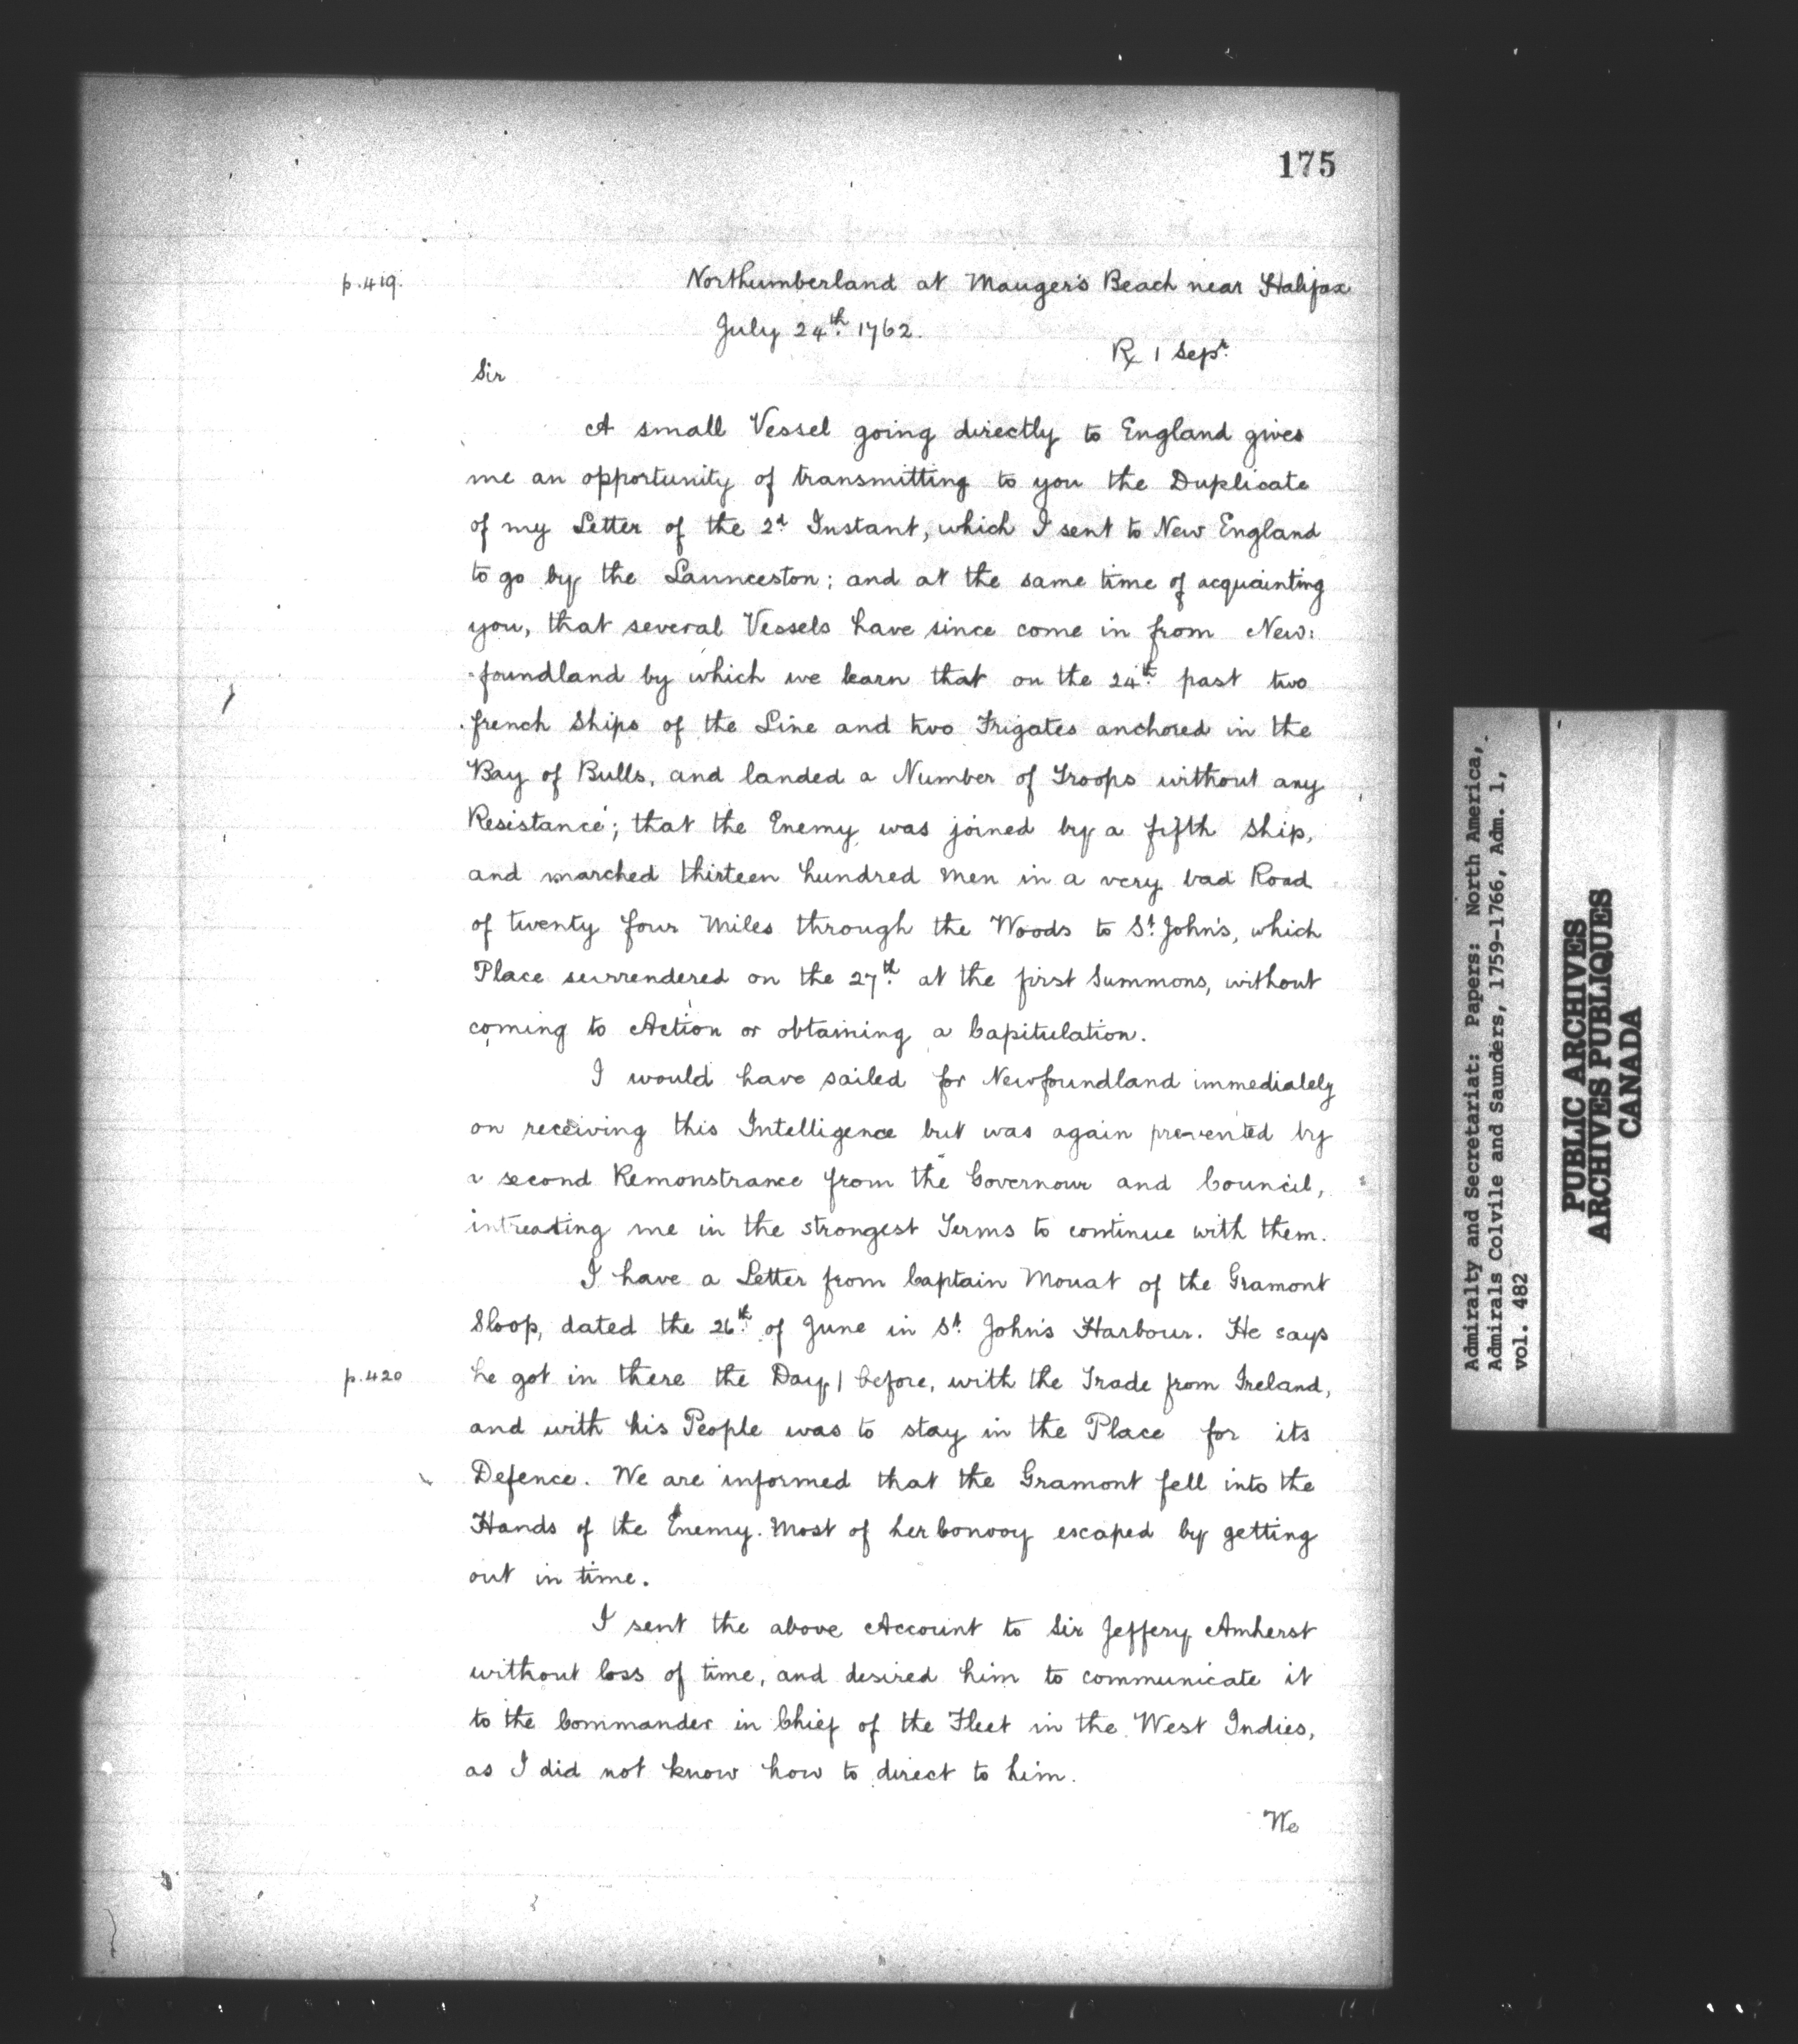 175
p.419.
Northumberland at Mauger's Beach near Halifax
July 24th. 1762.
Rx 1 Sepr.
Sir
A small Vessel going directly to England gives
me an opportunity of transmitting to you the Duplicate
of my Letter of the 2d Instant, which I sent to New England
to go by the Launceston; and at the same time of acquainting
you, that several Vessels have since come in from New:
-foundland by which we learn that on the 24th. past two
french Ships of the Line and two Frigates anchored in the
Bay of Bulls, and landed a Number of Troops without any
Resistance; that the Enemy was joined by a fifth Ship,
and marched thirteen hundred Men in a very bad Road
of twenty four Miles through the Woods to St. John's, which
Place surrendered on the 27th. at the first Summons, without
coming to Action or obtaining a Capitulation.
I would have sailed for Newfoundland immediately
on receiving this Intelligence but was again prevented by
a second Remonstrance from the Governour and Council,
intreating me in the strongest Terms to continue with them.
I have a Letter from Captain Mouat of the Gramont
Sloop, dated the 26th. of June in St. John's Harbour. He says
p.420
he got in there the Day/ before, with the Trade from Ireland,
and with his People was to stay in the Place for its
Defence. We are informed that the Gramont fell into the
Hands of the Enemy. Most of her Convoy escaped by getting
out in time.
I sent the above Account to Sir Jeffery Amherst
without loss of time, and desired him to communicate it
to the Commander in Chief of the Fleet in the West Indies,
as I did not know how to direct to him.
We
Admiralty and Secretariat: Papers: North America,
Admirals Colvile and Saunders, 1759-1766, Adm. 1,
vol. 482
PUBLIC ARCHIVES
ARCHIVES PUBLIQUES
CANADA